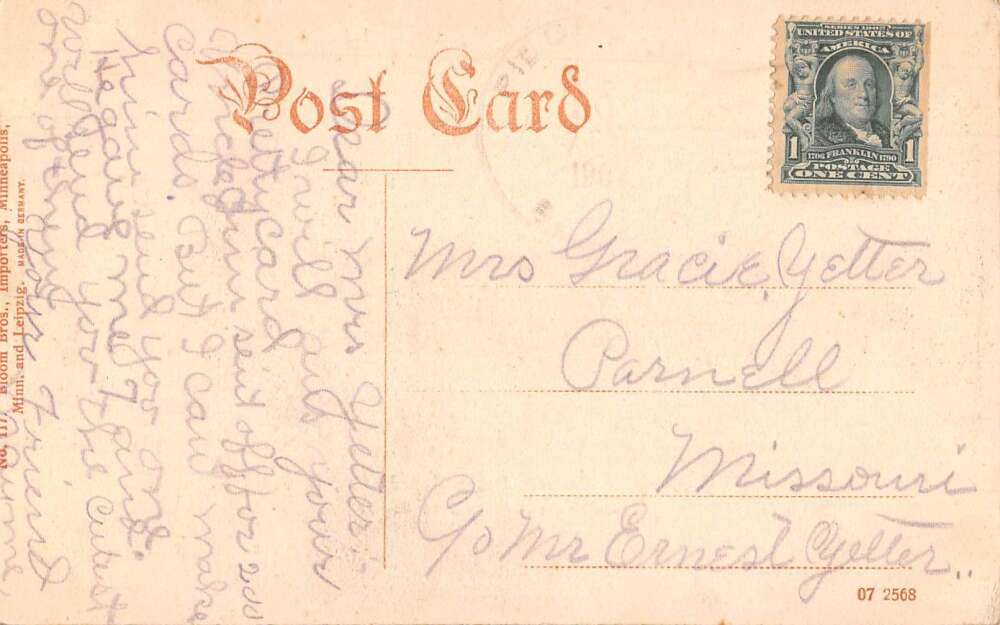 Post Card
SERIES 1902
UNITED STATES OF
AMERICA
1706 FRANKLIN 1790
1 POSTAGE 1
ONE CENT
Mrs Gracie Yetter
Parnell
Missouri
C/o Mr Ernest Yetter..
07 2568
Dear Mrs Yetter.
I will ans your
Pretty card
Uncle Jim sent off for 200
Cards. But I can make
him send you one.
He gave me
will send you the cutest
one of
Your Friend
Bloom Bros., Importers, Minneapolis,
Minn. and Leipzig. MADE IN GERMANY.